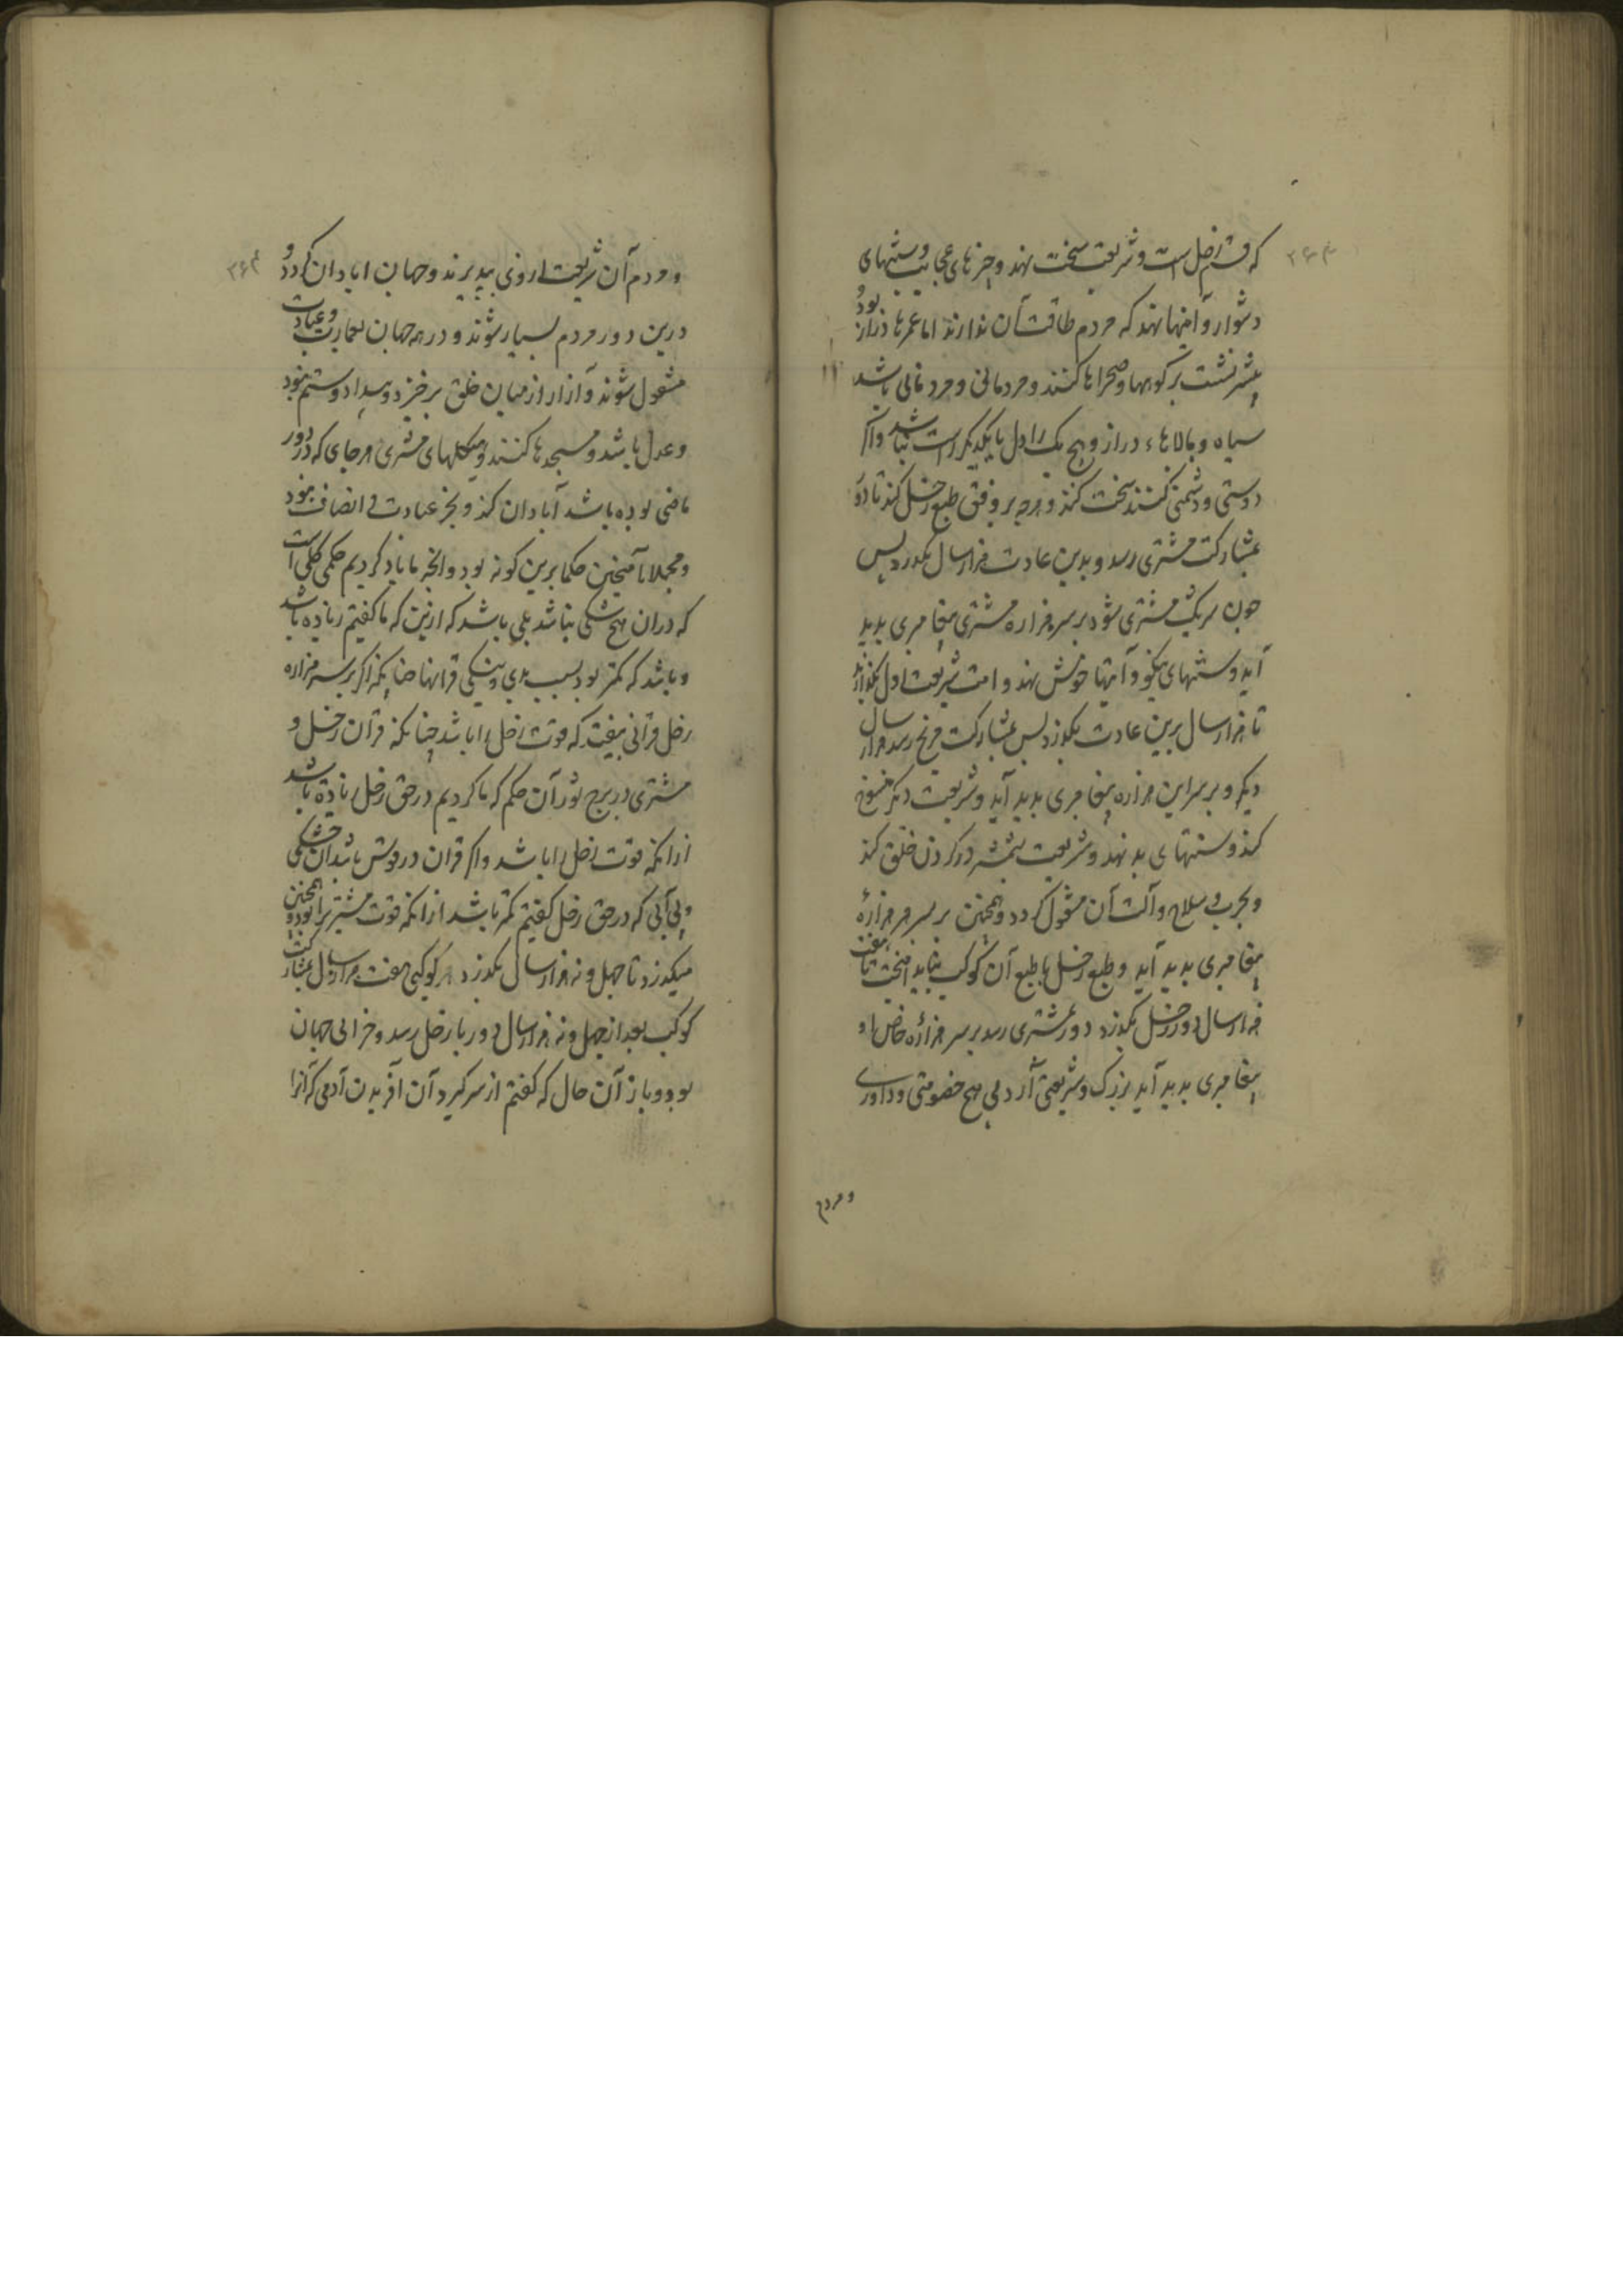 که قسم زحل است و شریعت سخت نهد و چیزهای عجایب و سنتهای
دشوار و آیینها نهد که مردم طاقت آن ندارند اما عمرها دراز بود و
بیشتر نشست بر کوهها و صحراها کنند و مردمانی باشد
سیاه و بالاهاء دراز و هیچ یک را دل با یکدیگر راست نباشد و اگر
دوستی و دشمنی کنند سخت کنند و هرچه بر وفق طبع زحل کند تا دو
بمشارکت مشتری رسد و بدین عادت هزار سال بگذرد پس
چون شریک مشتری شود بر سر هزاره مشتری پیغامبری پدید
آید و سنتهای نیکو و آیینها خوش نهد و امت شریعت اول بگذارند
تا هزار سال برین عادت بگذرد پس بمشارکت مریخ رسد هزار سال
دیگر و بر سر این هزاره پیغامبری پدید آید و شریعت دیگر منسوخ
کند و سنتهای بد نهد و شریعت بشمشیر در کردن خلق کند
و بحرب و سلاح و آلت آن مشغول گردد و همچنین بر سر هر هزاره
پیغامبری پدید آید و طبع زحل با طبع آن کوکب بباید آمیخت تا هفت
هزار سال دور زحل بگذرد دور بمشتری رسد بر سر هزاره خاص او
پیغامبری پدید آید بزرگ و شریعتی آرد بی هیچ خصومتی و داوری
و مردم
و مردم آن شریعت از وی بپذیرند و جهان ابادان گردد و
درین دور مردم بسیار شوند و در همه جهان بعمارت و عبادت
مشغول شوند و آزار از میان خلق برخیزد و بیداد و ستم نبود
و عدل باشد و مسجدها کنند و هیکلهای مشتری هر جای که در دور
ماضی بوده باشد آبادان کنند و بجز عبادت و انصاف نبود
و مجملا آمیختن حکما برین گونه بود و آنچه ما یاد کردیم حکمی کلی است
که در ان هیچ شکی نباشد بلی باشد که ازین که ما گفتیم زیاده باشد
و باشد که کمتر بود بسبب بدی و نیکی قرانها چنانکه اگر بر سر هزاره
زحل قرانی بیفتد که قوت زحل را باشد چنانکه قران زحل و
مشتری در برج ثور آن حکم که ما کردیم در حق زحل زیاده باشد
ازانکه قوت زحل را باشد و اگر قران در قوس باشد آن خشکی
و بی آبی که در حق زحل گفتیم کمتر باشد ازانکه قوت مشتری را بود و همچنین
میگذرد تا چهل و نه هزار سال بگذرد هر کوکبی هفت هزار سال بمشارکت
کوکب بعد از چهل و نه هزار سال دور باز زحل رسد و خرابی جهان
بود و باز آن حال که گفتیم از سر گیرد آن آفریدن آدمی که آنرا